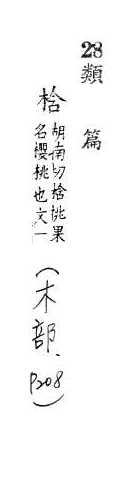 28類篇
桰
胡南切桰桃果
名櫻桃也文一
(木部、P208)